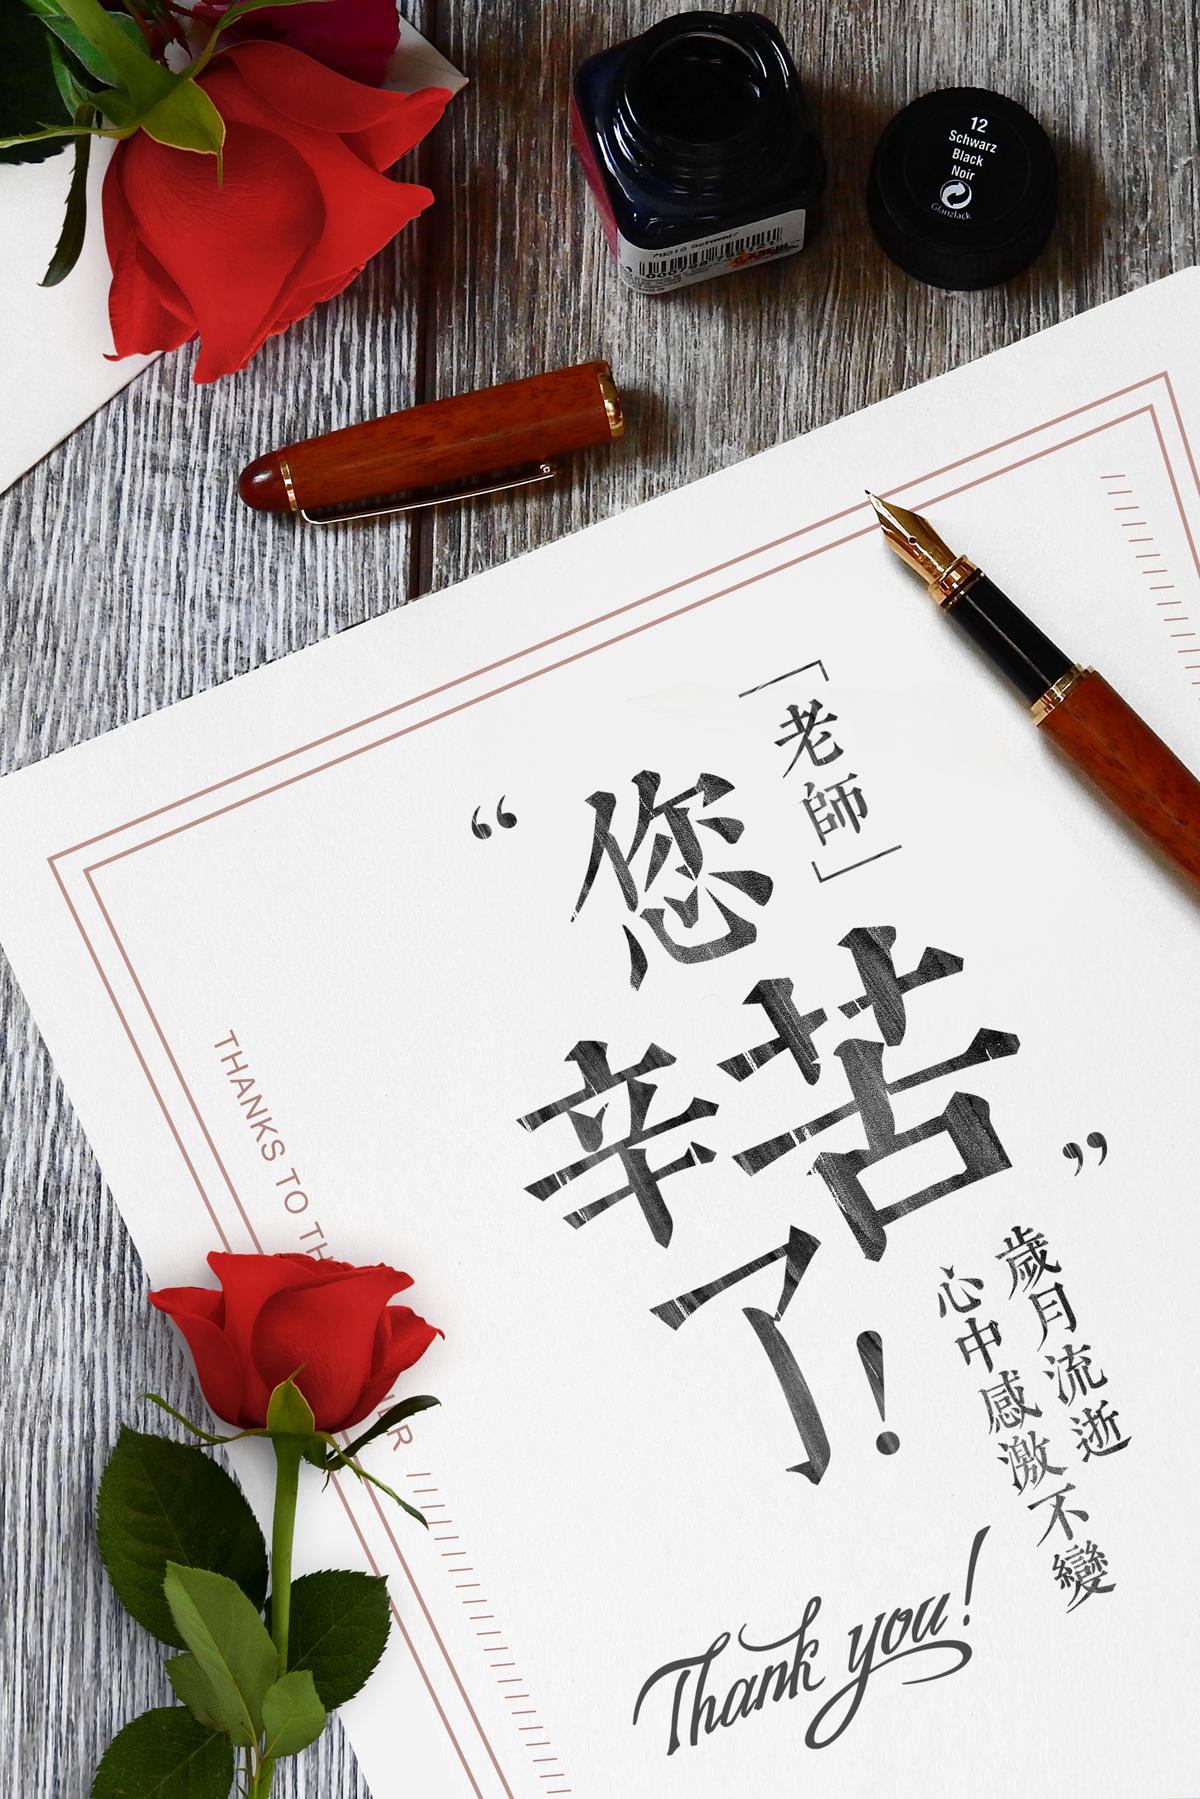 12
Schwarz
Black
Noir
Glanzlack
「老師」
“您
辛苦
了!”
歲月流逝
心中感激不變
Thank you!
THANKS TO TH
ER